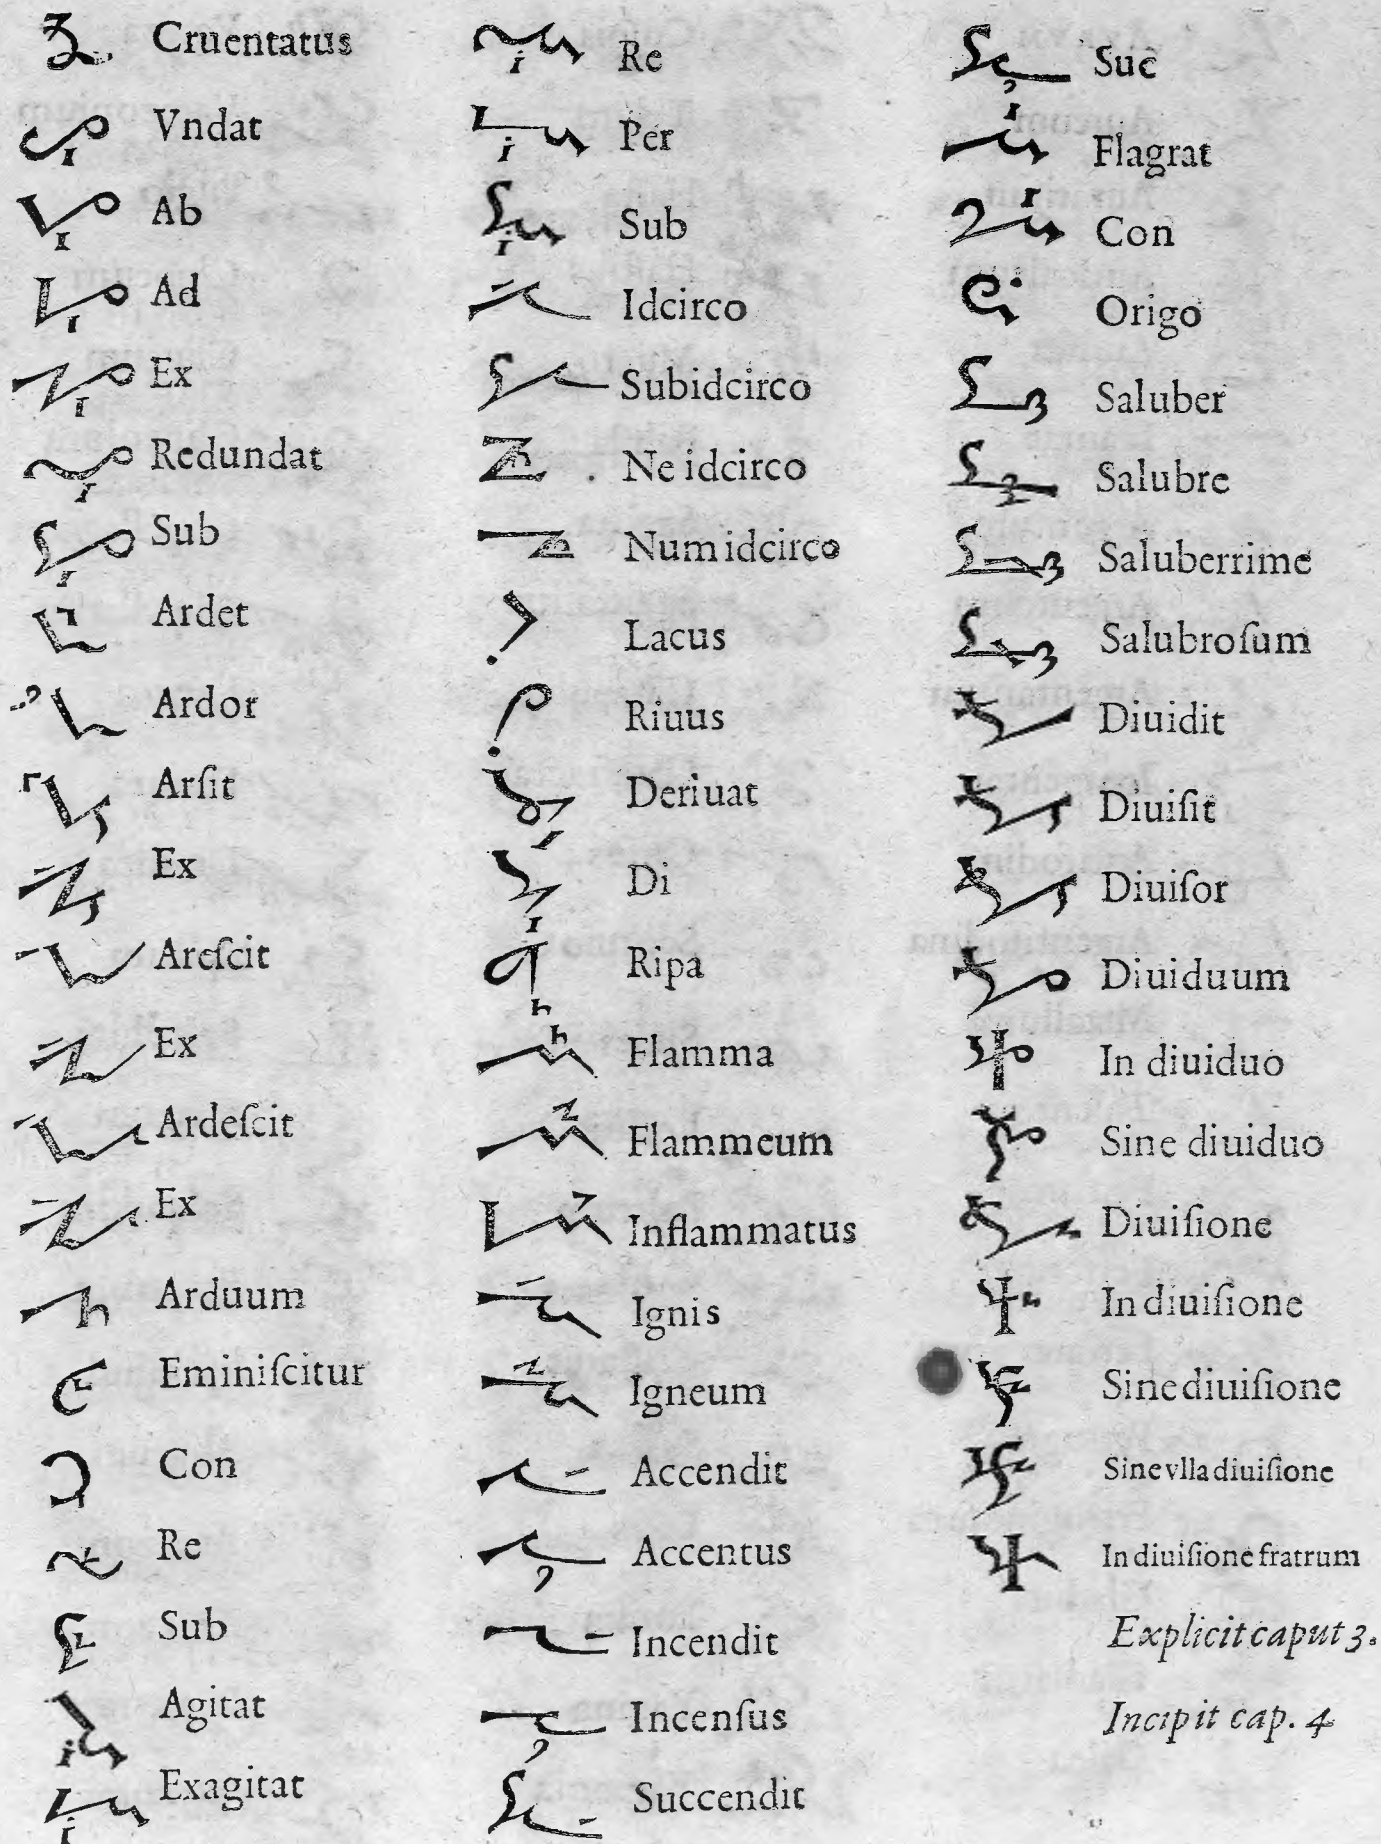 Cruentatus
Vndat
Ab
Ad
Ex
Redundat
Sub
Ardet
Ardor
Arſit
Ex
Areſcit
Ex
Ardeſcit
Ex
Arduum
Eminiſcitur
Con
Re
Sub
Agitat
Exagitat
Re
Per
Sub
Idcirco
Subidcirco
Ne idcirco
Num idcirco
Lacus
Riuus
Deriuat
Di
Ripa
Flamma
Flammeum
Inflammatus
Ignis
Igneum
Accendit
Accentus
Incendit
Incenſus
Succendit
Suc
Flagrat
Con
Origo
Saluber
Salubre
Saluberrime
Salubroſum
Diuidit
Diuiſit
Diuiſor
Diuiduum
In diuiduo
Sine diuiduo
Diuiſione
In diuiſione
Sine diuiſione
Sine vlla diuiſione
In diuiſione fratrum
Explicit caput 3.
Incipit cap. 4